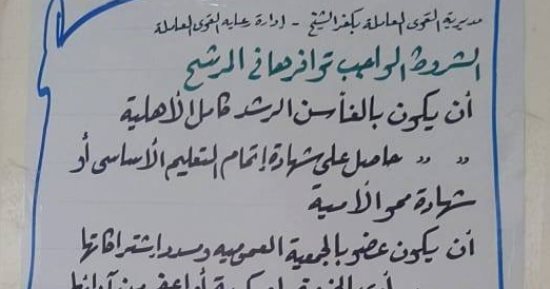 مديرية القوى العاملة بكفر الشيخ - إدارة رعاية القوى العاملة
الشروط الواجب توافرها في المرشح
أن يكون بالغاً سن الرشد كامل الأهلية
" " حاصل على شهادة إتمام التعليم الأساسى أو
شهادة محو الأمية
أن يكون عضو بالجمعية العموميه ومسدد إشتراكاتها